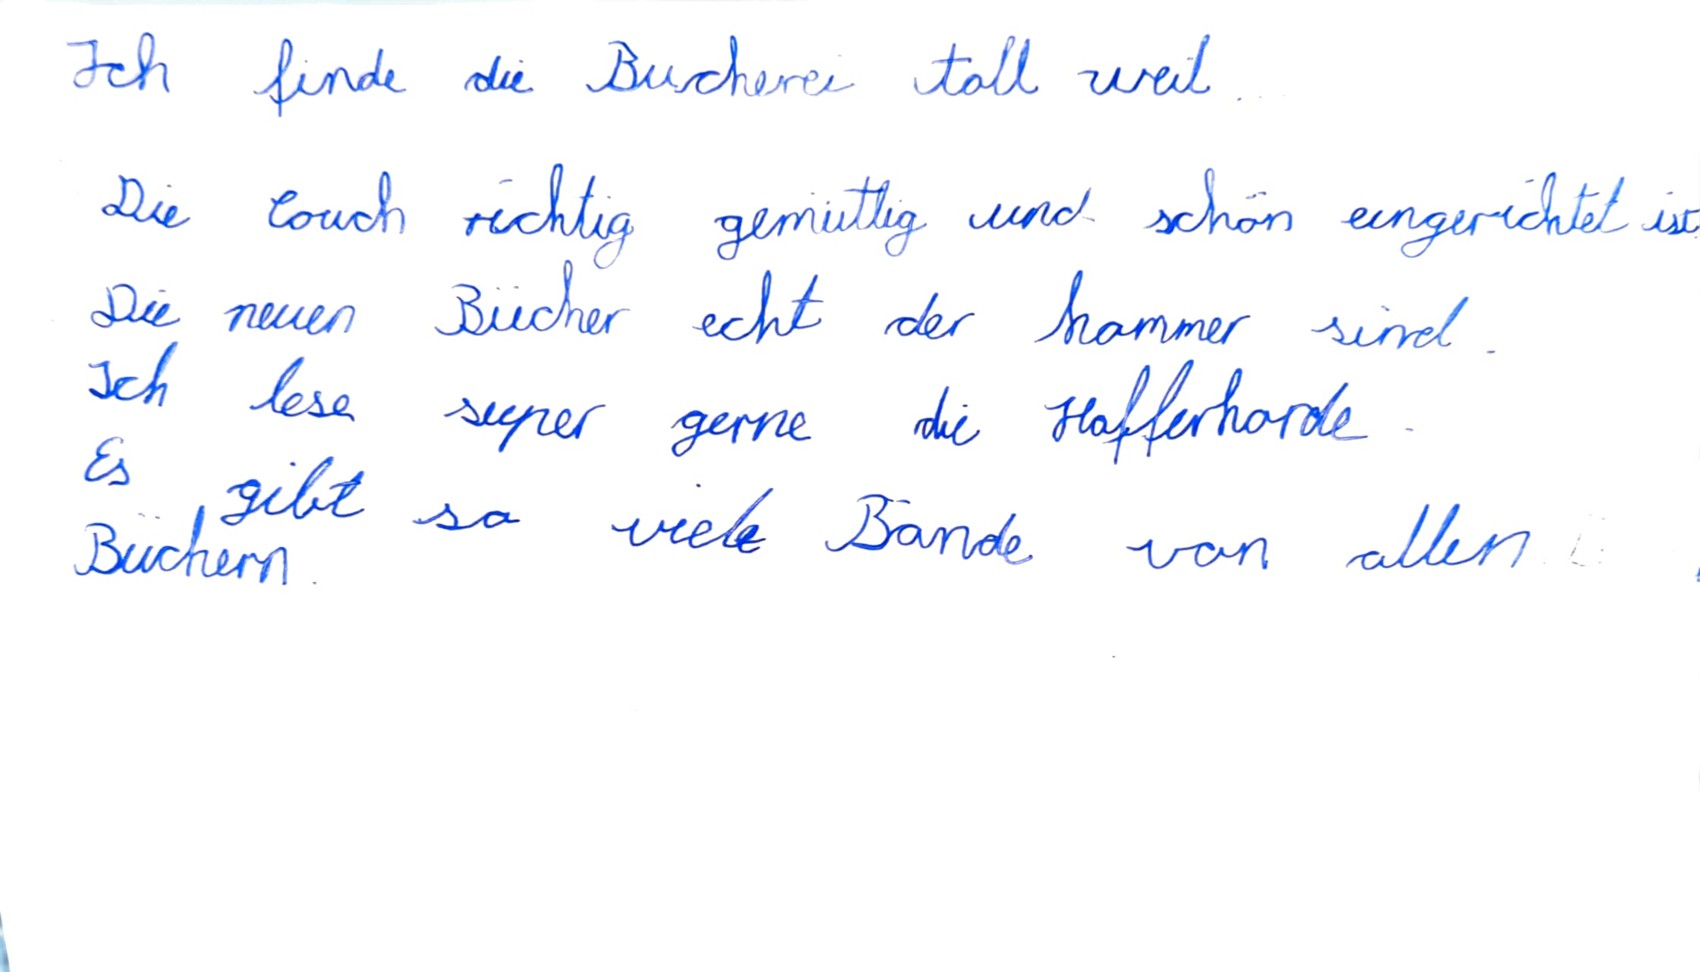 Ich finde die Bucherei toll weil...
Die Couch richtig gemütlig und schön eingerichtet ist.
Die neuen Bücher echt der hammer sind.
Ich lese super gerne die Hafferhorde.
Es gibt so viele Bände von allen
Büchern.